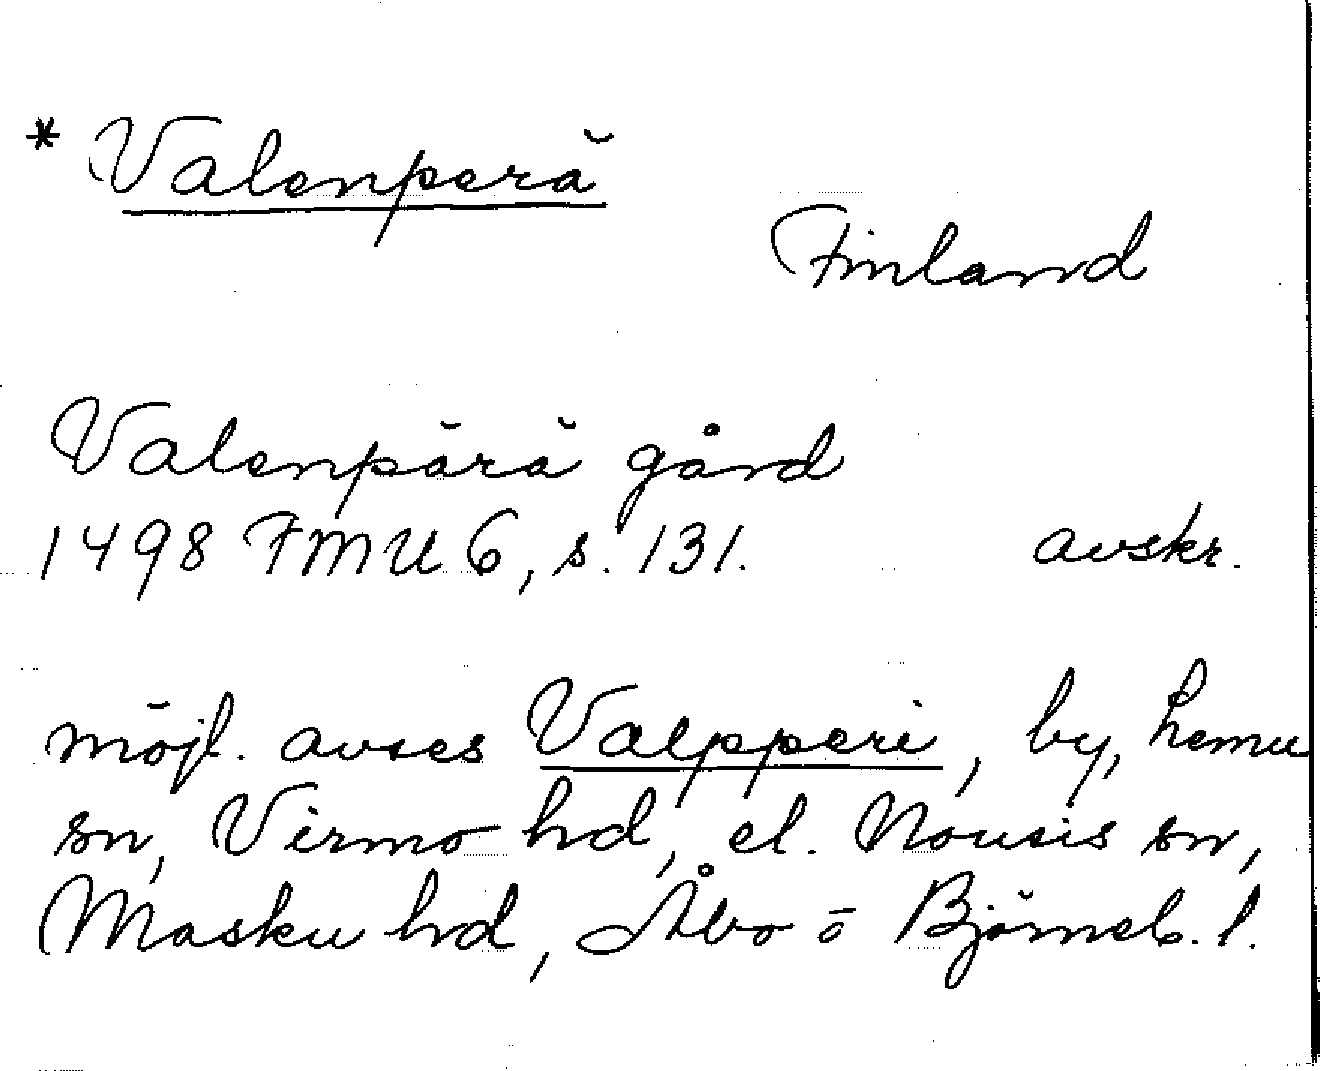 * Valenperä
Finland
Valenpärä gård
1498 FMU 6, s. 131. avskr.
möjl. avses Valpperi, by, Lemu
sn, Virmo hd, el. Nousis sn,
Masku hd, Åbo o Björneb. l.